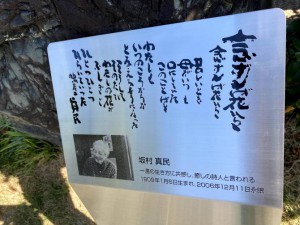 念ずれば
花ひらく
念ずれば
花ひらく
苦しいとき
母がいつも
口にしていた
このことばを
わたしも
いつのころからか
となえるようになった
そうして
そのたび
わたしの花が
ふしぎと
ひとつ
ひとつ
ひらいていった
坂村真民
坂村 真民
一遍の生き方に共感し、癒しの詩人と言われる
1909年1月6日生まれ、2006年12月11日永眠